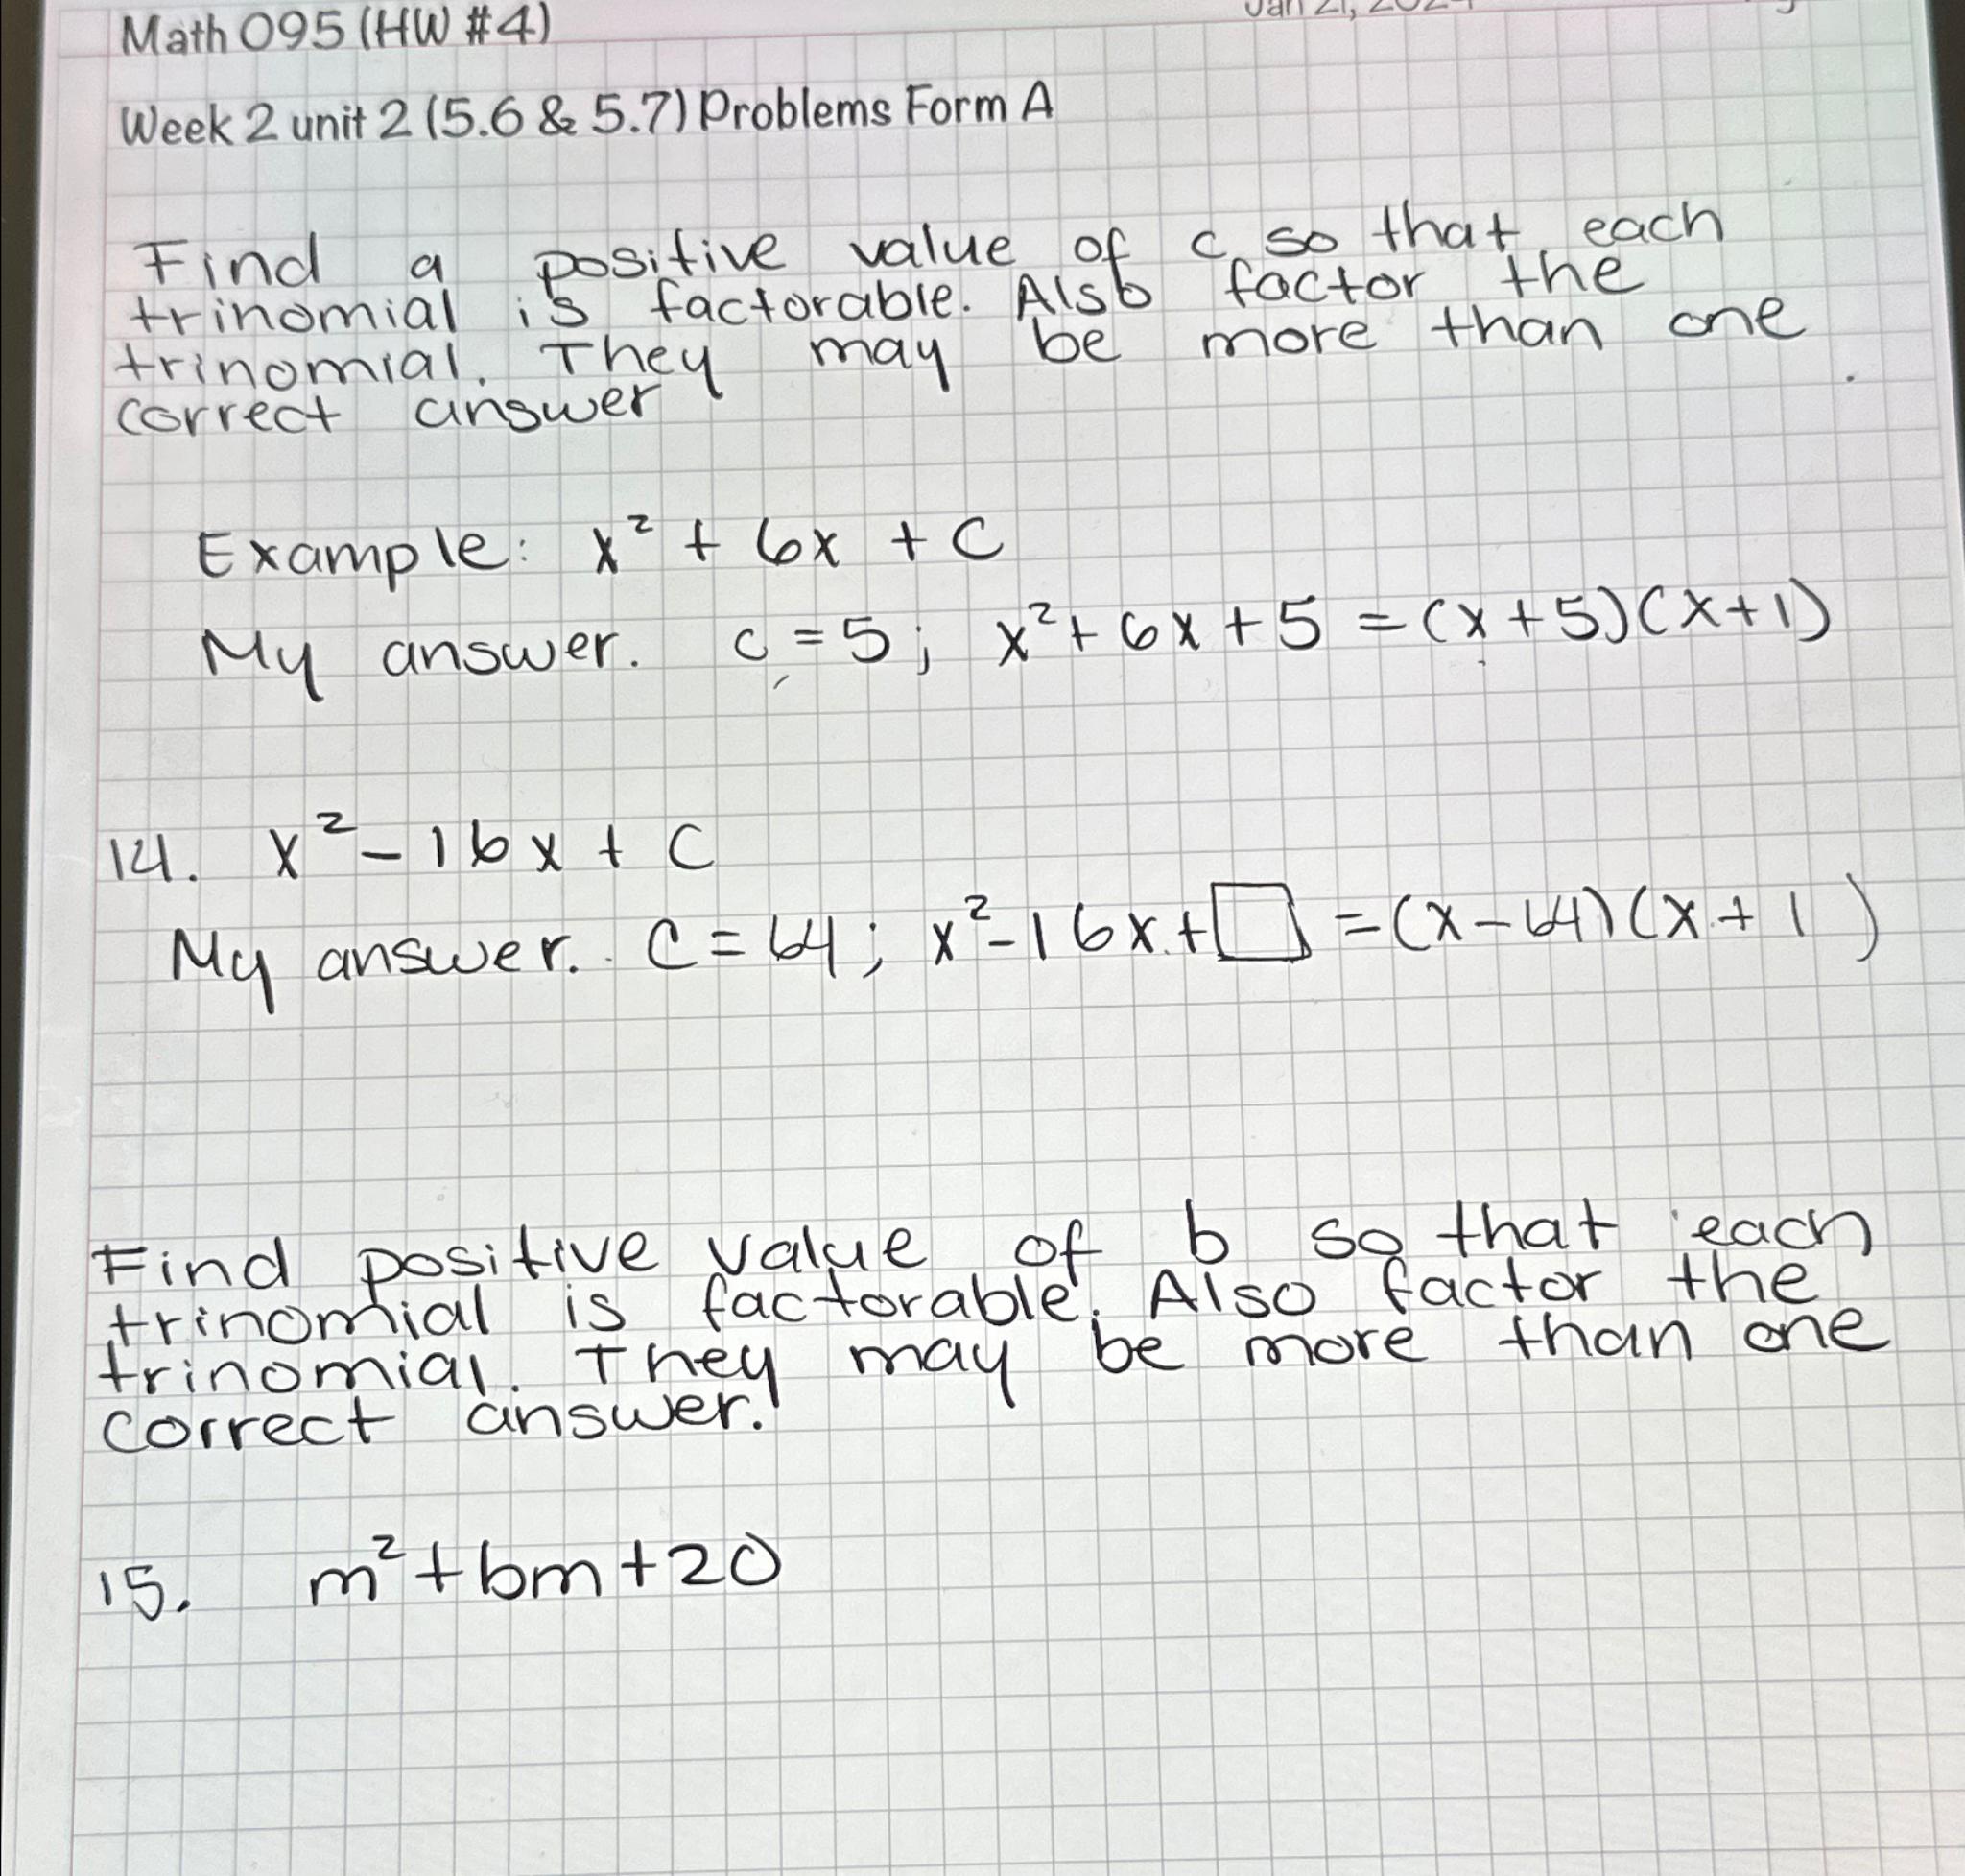 Math 095 (HW #4)
Week 2 unit 2 (5.6 & 5.7) Problems Form A
Find a positive value of c so that each
trinomial is factorable. Also factor the
trinomial. They may be more than one
correct answer
Example: x² + 6x + c
My answer. c = 5; x² + 6x + 5 = (x + 5)(x + 1)
14. x² - 16x + c
My answer. C = 64; x² - 16x + □ = (x - 64)(x + 1)
Find positive value of b so that each
trinomial is factorable. Also factor the
trinomial. They may be more than one
correct answer.
15. m² + bm + 20